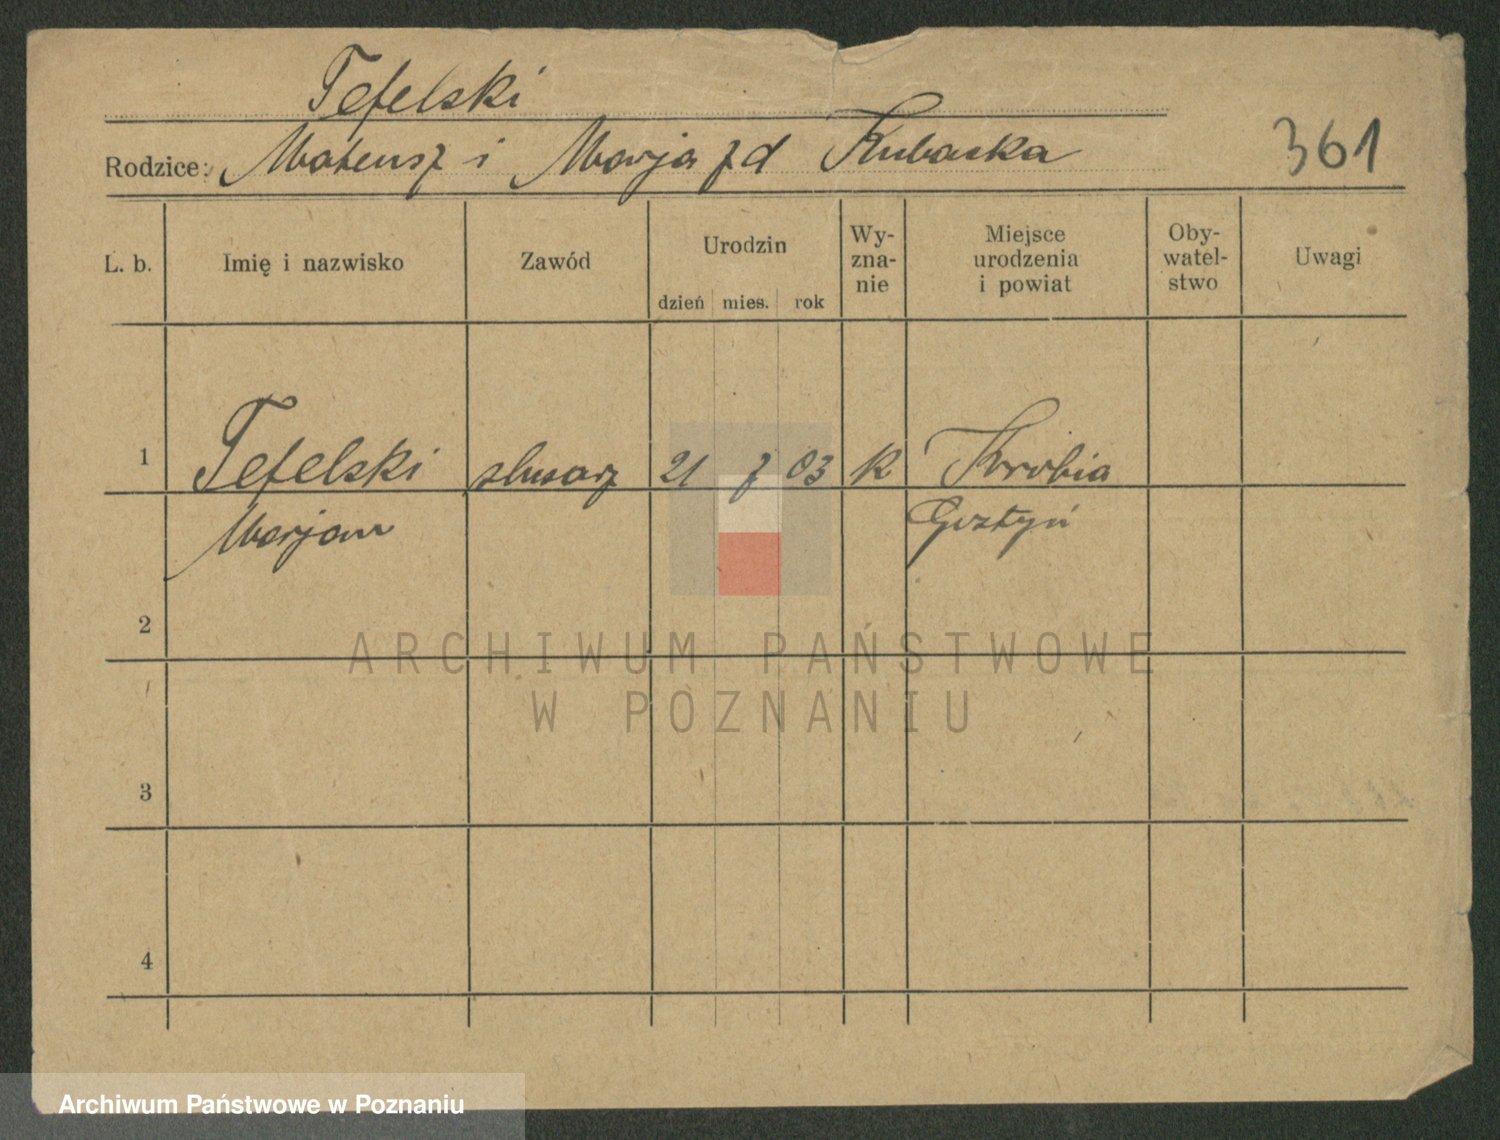 Tefelski
Rodzice: Mateusz i Marja z d Kubacka
361
L. b. Imię i nazwisko Zawód Urodzin Wy- Miejsce Oby- Uwagi
zna- urodzenia watel-
nie i powiat stwo
dzień mies. rok
1 Tefelski slusarz 21 7 03 k Krobia
Marjan Gostyń
2
ARCHIWUM PAŃSTWOWE
W POZNANIU
3
4
Archiwum Państwowe w Poznaniu